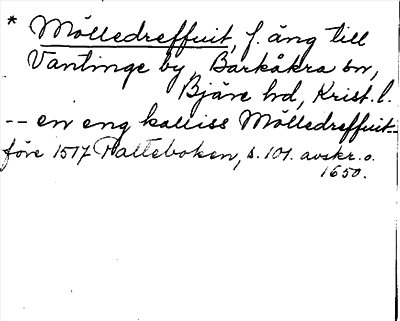 * Mölledreffuit, f. äng till
Vantinge by, Barkåkra sn,
Bjäre hd, Krist. l.
-- en eng kalliss Mölledreffuit --
före 1517 Palteboken, s. 101. avskr. o.
1650.